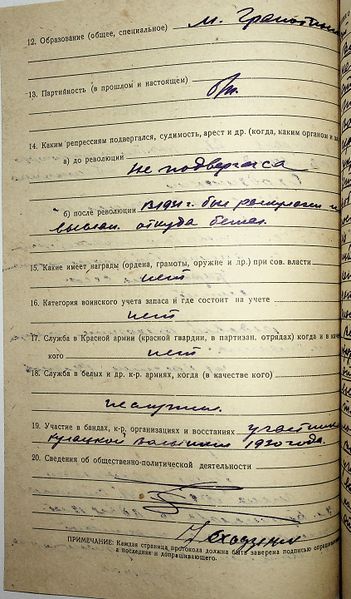 12. Образование (общее, специальное) м. грамотный
13. Партийность (в прошлом и настоящем)
б/п.
14. Каким репрессиям подвергался, судимость, арест и др. (когда, каким органом и за
а) до революции
не подвергался
б) после революции В 1931 г. был раскулачен и
выслан. откуда бежал.
15. Какие имеет награды (ордена, грамоты, оружие и др.) при сов. власти
нет
16. Категория воинского учета запаса и где состоит на учете
нет
17. Служба в Красной армии (красной гвардии, в партизан. отрядах) когда и в каче
кого нет
18. Служба в белых и др. к-р. армиях, когда (в качестве кого)
не служил.
19. Участие в бандах, к-р. организациях и восстаниях участник
кулацкой волынки 1930 года.
20. Сведения об общественно-политической деятельности
ПРИМЕЧАНИЕ: Каждая страница протокола должна быть заверена подписью
а последняя и допрашивающего.